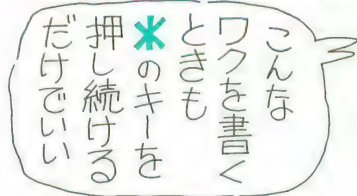 こんな
ワクを書く
ときも
*のキーを
押し続ける
だけでいい